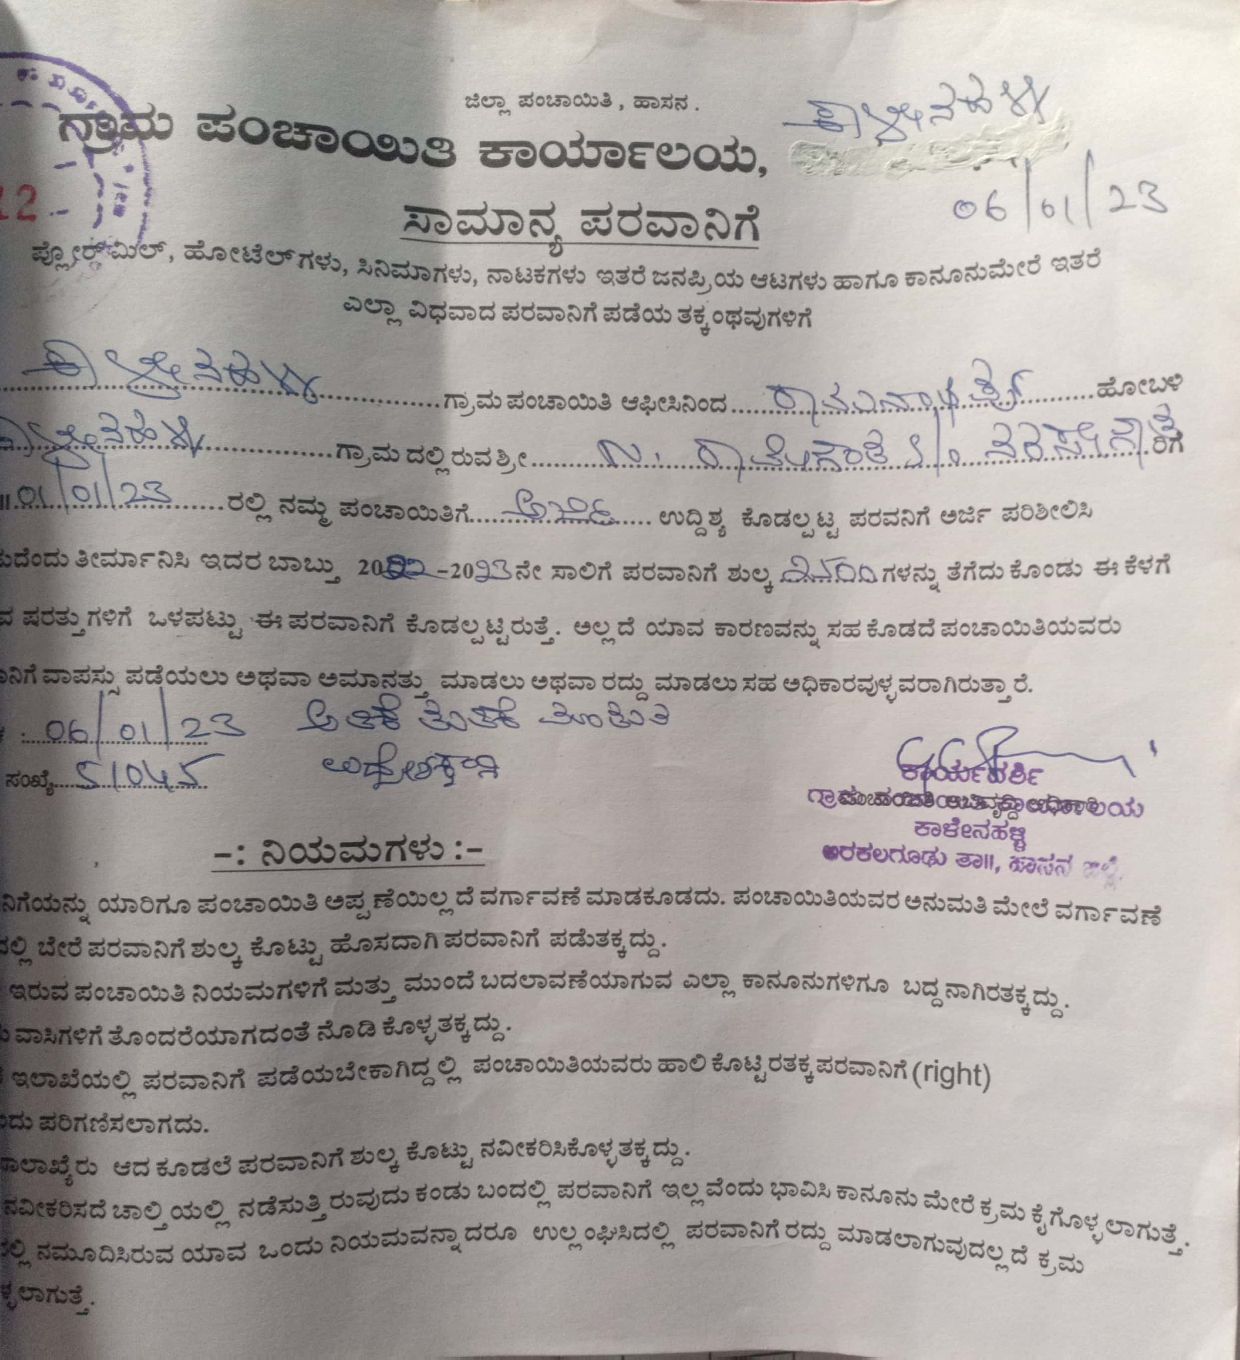 ಜಿಲ್ಲಾ ಪಂಚಾಯಿತಿ, ಹಾಸನ.
ಗ್ರಾಮ ಪಂಚಾಯಿತಿ ಕಾರ್ಯಾಲಯ, ಕಾಳೇನಹಳ್ಳಿ
12
06/01/23
ಸಾಮಾನ್ಯ ಪರವಾನಿಗೆ
ಪ್ಲೋರ್‌ಮಿಲ್, ಹೋಟೆಲ್‌ಗಳು, ಸಿನಿಮಾಗಳು, ನಾಟಕಗಳು ಇತರೆ ಜನಪ್ರಿಯ ಆಟಗಳು ಹಾಗೂ ಕಾನೂನುಮೇರೆ ಇತರೆ
ಎಲ್ಲಾ ವಿಧವಾದ ಪರವಾನಿಗೆ ಪಡೆಯ ತಕ್ಕಂಥವುಗಳಿಗೆ
ಕಾಳೇನಹಳ್ಳಿ ಗ್ರಾಮ ಪಂಚಾಯಿತಿ ಆಫೀಸಿನಿಂದ ರಾಮನಾಥಪುರ ಹೋಬಳಿ
ಕಾಳೇನಹಳ್ಳಿ ಗ್ರಾಮದಲ್ಲಿರುವ ಶ್ರೀ N. ರಿಗೆ
01/01/23 ರಲ್ಲಿ ನಮ್ಮ ಪಂಚಾಯಿತಿಗೆ ಉದ್ದಿಶ್ಯ ಕೊಡಲ್ಪಟ್ಟ ಪರವನಿಗೆ ಅರ್ಜಿ ಪರಿಶೀಲಿಸಿ
ತೀರ್ಮಾನಿಸಿ ಇದರ ಬಾಬ್ತು 2022-2023ನೇ ಸಾಲಿಗೆ ಪರವಾನಿಗೆ ಶುಲ್ಕ ಗಳನ್ನು ತೆಗೆದುಕೊಂಡು ಈ ಕೆಳಗೆ
ಷರತ್ತುಗಳಿಗೆ ಒಳಪಟ್ಟು ಈ ಪರವಾನಿಗೆ ಕೊಡಲ್ಪಟ್ಟಿರುತ್ತೆ. ಅಲ್ಲದೆ ಯಾವ ಕಾರಣವನ್ನು ಸಹ ಕೊಡದೆ ಪಂಚಾಯಿತಿಯವರು
ವಾಪಸ್ಸು ಪಡೆಯಲು ಅಥವಾ ಅಮಾನತ್ತು ಮಾಡಲು ಅಥವಾ ರದ್ದು ಮಾಡಲು ಸಹ ಅಧಿಕಾರವುಳ್ಳವರಾಗಿರುತ್ತಾರೆ.
: 06/01/23
ಸಂಖ್ಯೆ 51045
ಕಾರ್ಯದರ್ಶಿ
ಕಾಳೇನಹಳ್ಳಿ
ಅರಕಲಗೂಡು ತಾ॥, ಹಾಸನ
-: ನಿಯಮಗಳು :-
ಯಾರಿಗೂ ಪಂಚಾಯಿತಿ ಅಪ್ಪಣೆಯಿಲ್ಲದೆ ವರ್ಗಾವಣೆ ಮಾಡಕೂಡದು. ಪಂಚಾಯಿತಿಯವರ ಅನುಮತಿ ಮೇಲೆ ವರ್ಗಾವಣೆ
ಬೇರೆ ಪರವಾನಿಗೆ ಶುಲ್ಕ ಕೊಟ್ಟು ಹೊಸದಾಗಿ ಪರವಾನಿಗೆ ಪಡೆತಕ್ಕದ್ದು.
ಇರುವ ಪಂಚಾಯಿತಿ ನಿಯಮಗಳಿಗೆ ಮತ್ತು ಮುಂದೆ ಬದಲಾವಣೆಯಾಗುವ ಎಲ್ಲಾ ಕಾನೂನುಗಳಿಗೂ ಬದ್ದನಾಗಿರತಕ್ಕದ್ದು.
ವಾಸಿಗಳಿಗೆ ತೊಂದರೆಯಾಗದಂತೆ ನೊಡಿಕೊಳ್ಳತಕ್ಕದ್ದು.
ಇಲಾಖೆಯಲ್ಲಿ ಪರವಾನಿಗೆ ಪಡೆಯಬೇಕಾಗಿದ್ದಲ್ಲಿ ಪಂಚಾಯಿತಿಯವರು ಹಾಲಿ ಕೊಟ್ಟಿರತಕ್ಕ ಪರವಾನಿಗೆ (right)
ಪರಿಗಣಿಸಲಾಗದು.
ಆದ ಕೂಡಲೆ ಪರವಾನಿಗೆ ಶುಲ್ಕ ಕೊಟ್ಟು ನವೀಕರಿಸಿಕೊಳ್ಳತಕ್ಕದ್ದು.
ನವೀಕರಿಸದೆ ಚಾಲ್ತಿಯಲ್ಲಿ ನಡೆಸುತ್ತಿರುವುದು ಕಂಡು ಬಂದಲ್ಲಿ ಪರವಾನಿಗೆ ಇಲ್ಲವೆಂದು ಭಾವಿಸಿ ಕಾನೂನು ಮೇರೆ ಕ್ರಮ ಕೈಗೊಳ್ಳಲಾಗುತ್ತೆ.
ನಮೂದಿಸಿರುವ ಯಾವ ಒಂದು ನಿಯಮವನ್ನಾದರೂ ಉಲ್ಲಂಘಿಸಿದಲ್ಲಿ ಪರವಾನಿಗೆ ರದ್ದು ಮಾಡಲಾಗುವುದಲ್ಲದೆ ಕ್ರಮ